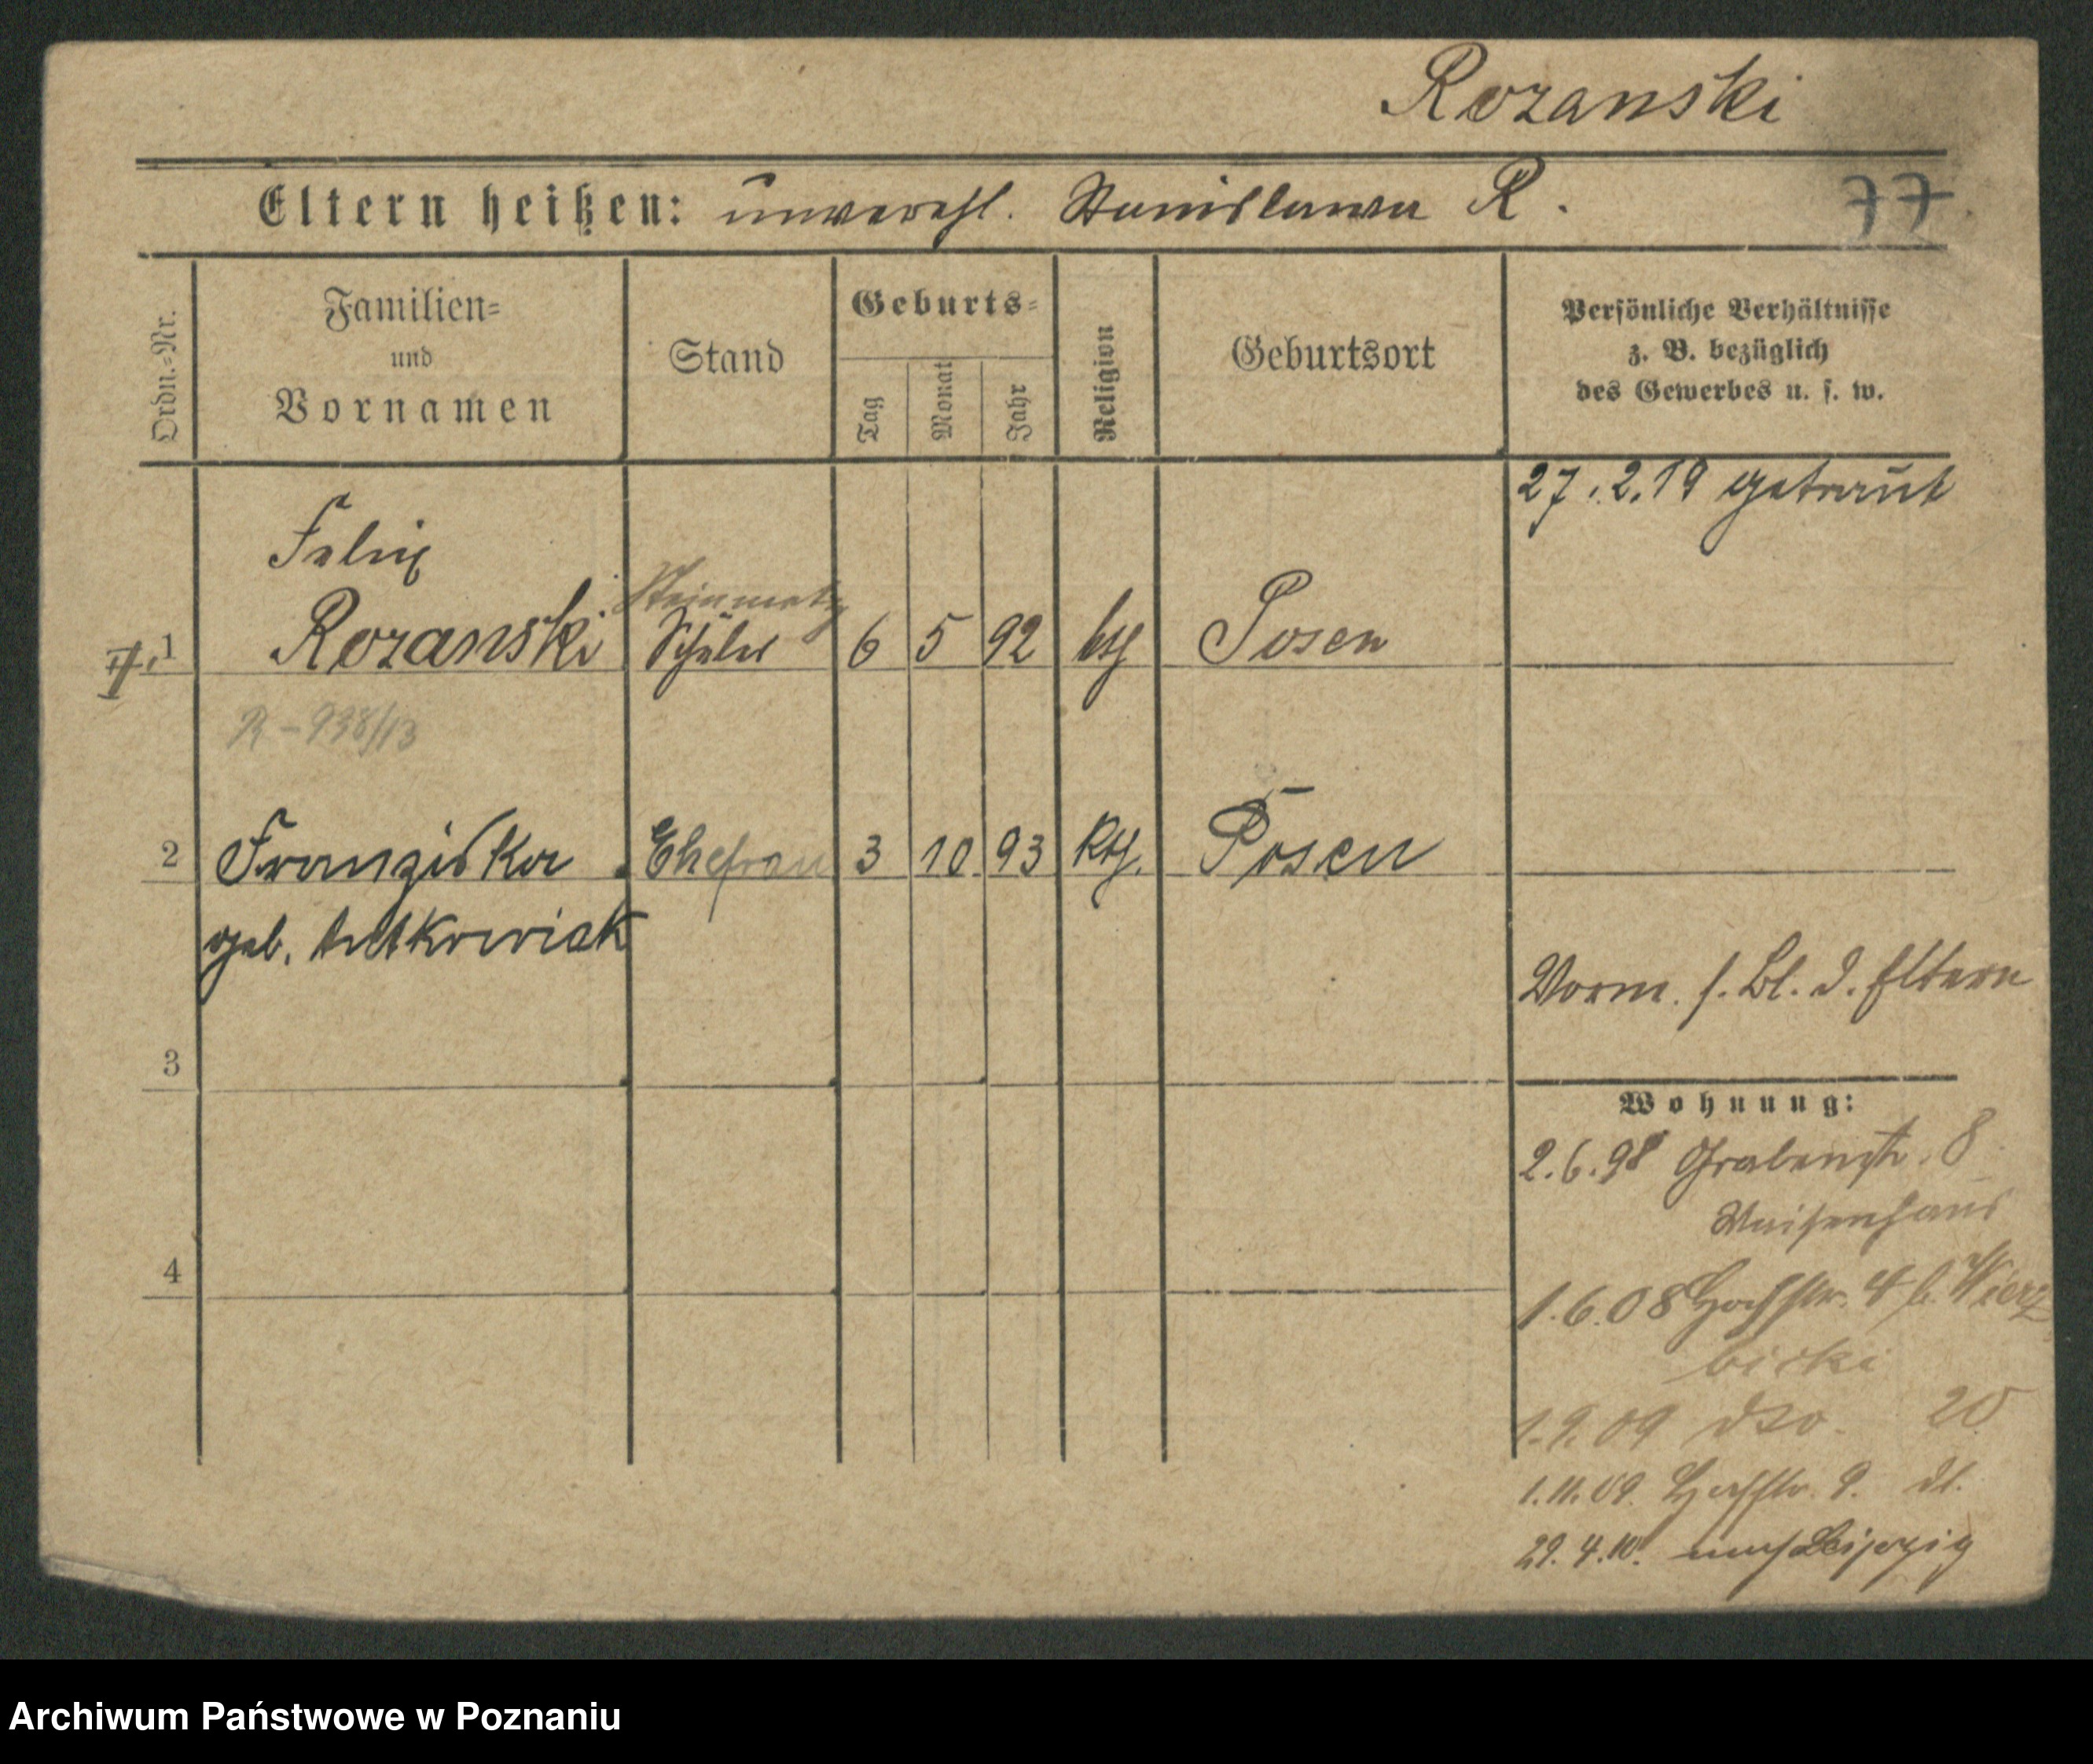 Rozanski
Eltern heißen: unverehl. Stanislawa R.
77
Ordn.-Nr.
Familien-
und
Vornamen
Stand
Geburts-
Tag
Monat
Jahr
Religion
Geburtsort
Persönliche Verhältnisse
z. B. bezüglich
des Gewerbes u. s. w.
27.2.19 getraut
Felix
Steinmetz
1 Rozanski Schüler 6 5 92 kth Posen
R - 938/13
2 Franziska Ehefrau 3 10 93 kth. Posen
geb.
Vorm. s. Bl. d. Eltern
3
Wohnung:
2.6.98 Grabenstr. 8
Waisenhaus
4
1.6.08 4 b. Wierz
bicki
1.9.09 dto. 20
1.11.09. 9. dt.
29.4.10. nach Leipzig
Archiwum Państwowe w Poznaniu